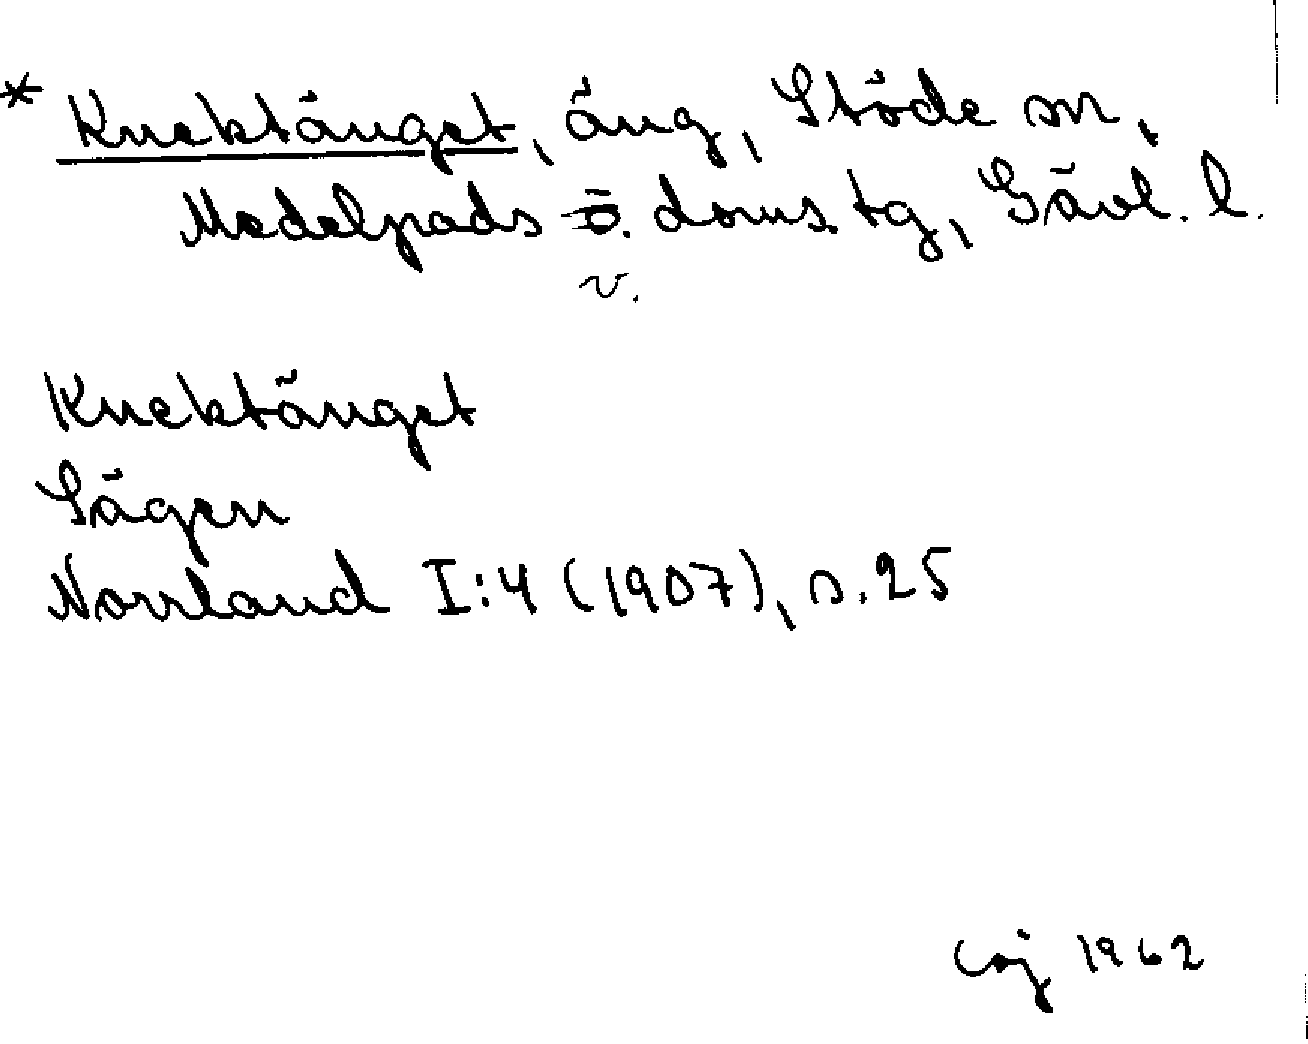 * Knektänget, äng, Stöde sn,
Medelpads ö. doms. tg, Gävl. l.
v.
Knektänget
Sägen
Norrland I:4 (1907), s. 25
1962